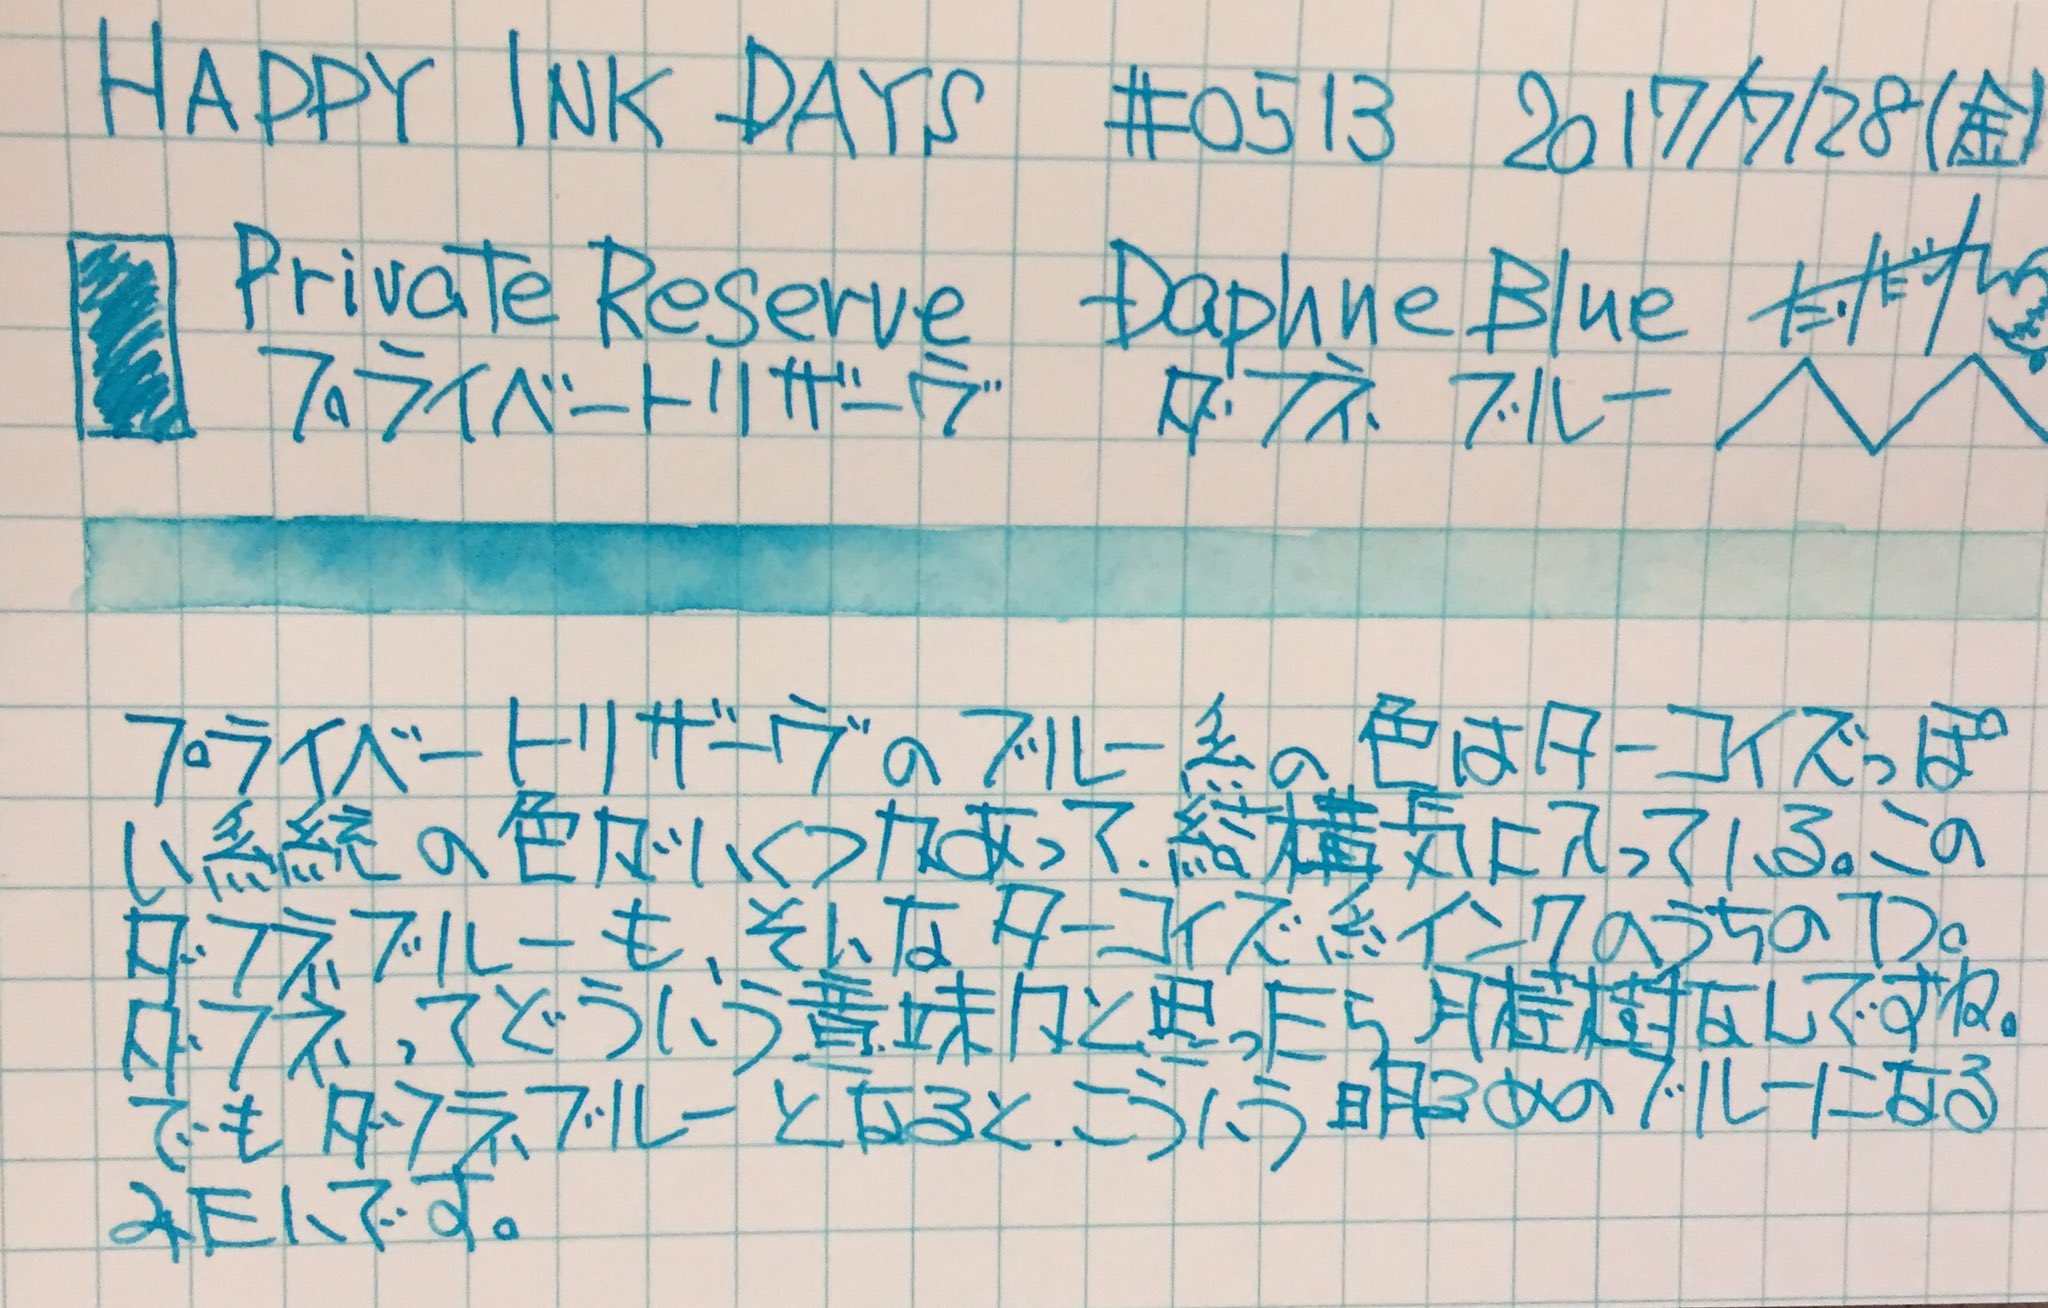 HAPPY INK DAYS #0513 2017/7/28(金)
Private Reserve Daphne Blue
プライベートリザーヴ ダフネ ブルー
プライベートリザーヴのブルー系の色はターコイズっぽ
い系統の色がいくつかあって、結構気に入っている。この
ダフネブルーも、そんなターコイズ系インクのうちの1つ。
ダフネってどういう意味かと思ったら月桂樹なんですね。
でもダフネブルーとなると、こういう明るめのブルーになる
みたいです。